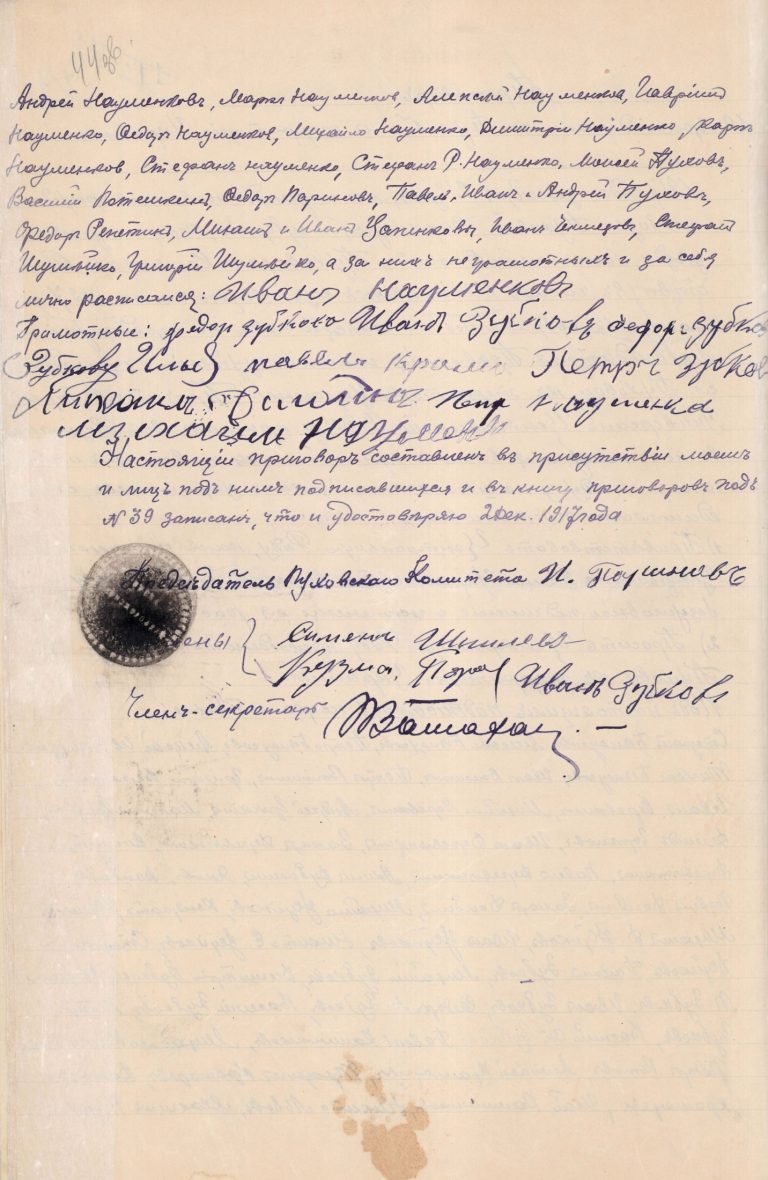 44 об
Андрей Науменковъ, Марко Науменков, Алексѣй Науменков, Гаврiил
Науменко, Ѳедоръ Науменков, Михайло Науменко, Дмитрiй Науменко, Карпъ
Науменков, Стефанъ Науменко, Стефанъ Р. Науменко, Моисей Пуховъ,
Василiй Потешкинъ, Ѳедоръ Париновъ, Павелъ, Иванъ и Андрей Пуховъ,
Ѳедоръ Репеткинъ, Михаилъ и Иванъ Цапенковы, Иванъ Степан
Шумейко, Григорiй Шумейко, а за нихъ неграмотныхъ и за себя
лично расписался: Иванъ Науменковъ
Грамотные: федор зубково Иванъ Зубковъ Федор зубков
Зубкову Илья павелъ Петръ зубков
Михаилъ Науменка
михаилъ Науменко
Настоящiй приговоръ составленъ въ присутствiи моемъ
и лицъ подъ нимъ подписавшихся и въ книгу приговоровъ подъ
№ 39 записанъ, что и удостовѣряю 2 Дек. 1917 года
Председатель Пуховскаго Комитета И. Париновъ
Члены } Сименъ
Кузма Иванъ Зубковъ
Членъ-секретарь